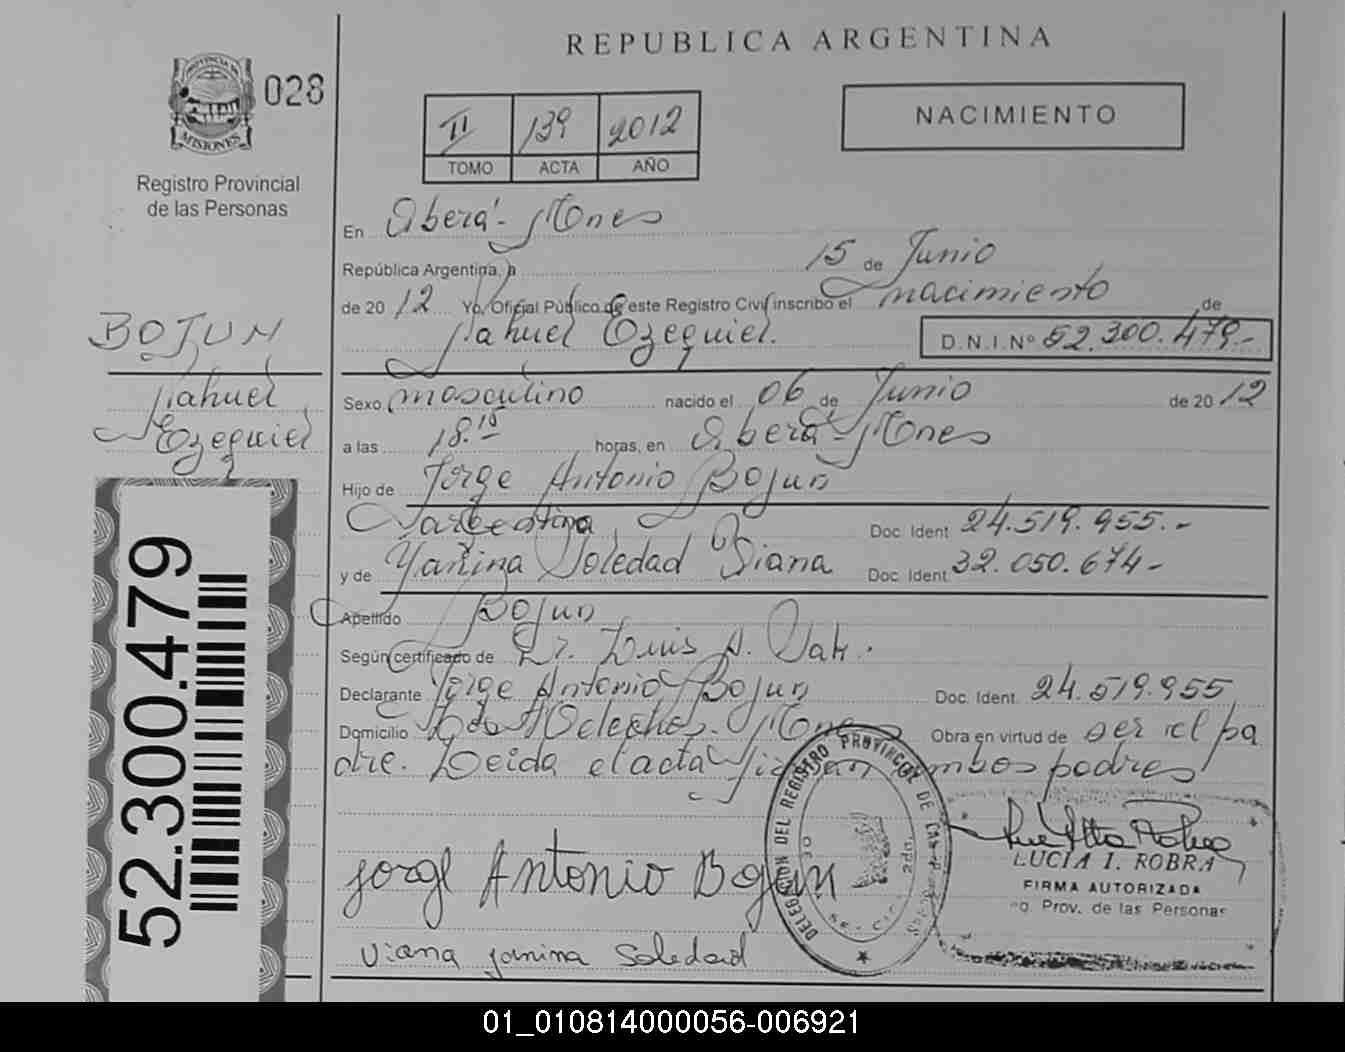 REPUBLICA ARGENTINA
PROVINCIA DE
MISIONES
028
Registro Provincial
de las Personas
II 139 2012
TOMO ACTA AÑO
NACIMIENTO
En Oberá - Mnes
República Argentina, a 15 de Junio
de 2012 Yo, Oficial Público de este Registro Civil inscribo el nacimiento de
Nahuel Ezequiel. D.N.I.Nº 52.300.479.-
BOJUN
Nahuel
Ezequiel
Sexo masculino nacido el 06 de Junio de 2012
a las 18.10 horas, en Oberá - Mnes
Hijo de Jorge Antonio Bojun
Argentina Doc. Ident 24.519.955.-
y de Yanina Soledad Viana Doc. Ident 32.050.674-
Apellido Bojun
Según certificado de Dr. Luis A.
Declarante Jorge Antonio Bojun Doc. Ident. 24.519.955
Domicilio Mnes Obra en virtud de ser el pa
dre. Leida el acta firman ambos padres
52.300.479
Jorge Antonio Bojun
Viana Janina Soledad
DELEGACION DEL REGISTRO PROVINCIAL DE LAS PERSONAS
LUCIA I. ROBRA
FIRMA AUTORIZADA
Prov. de las Personas
01_010814000056-006921